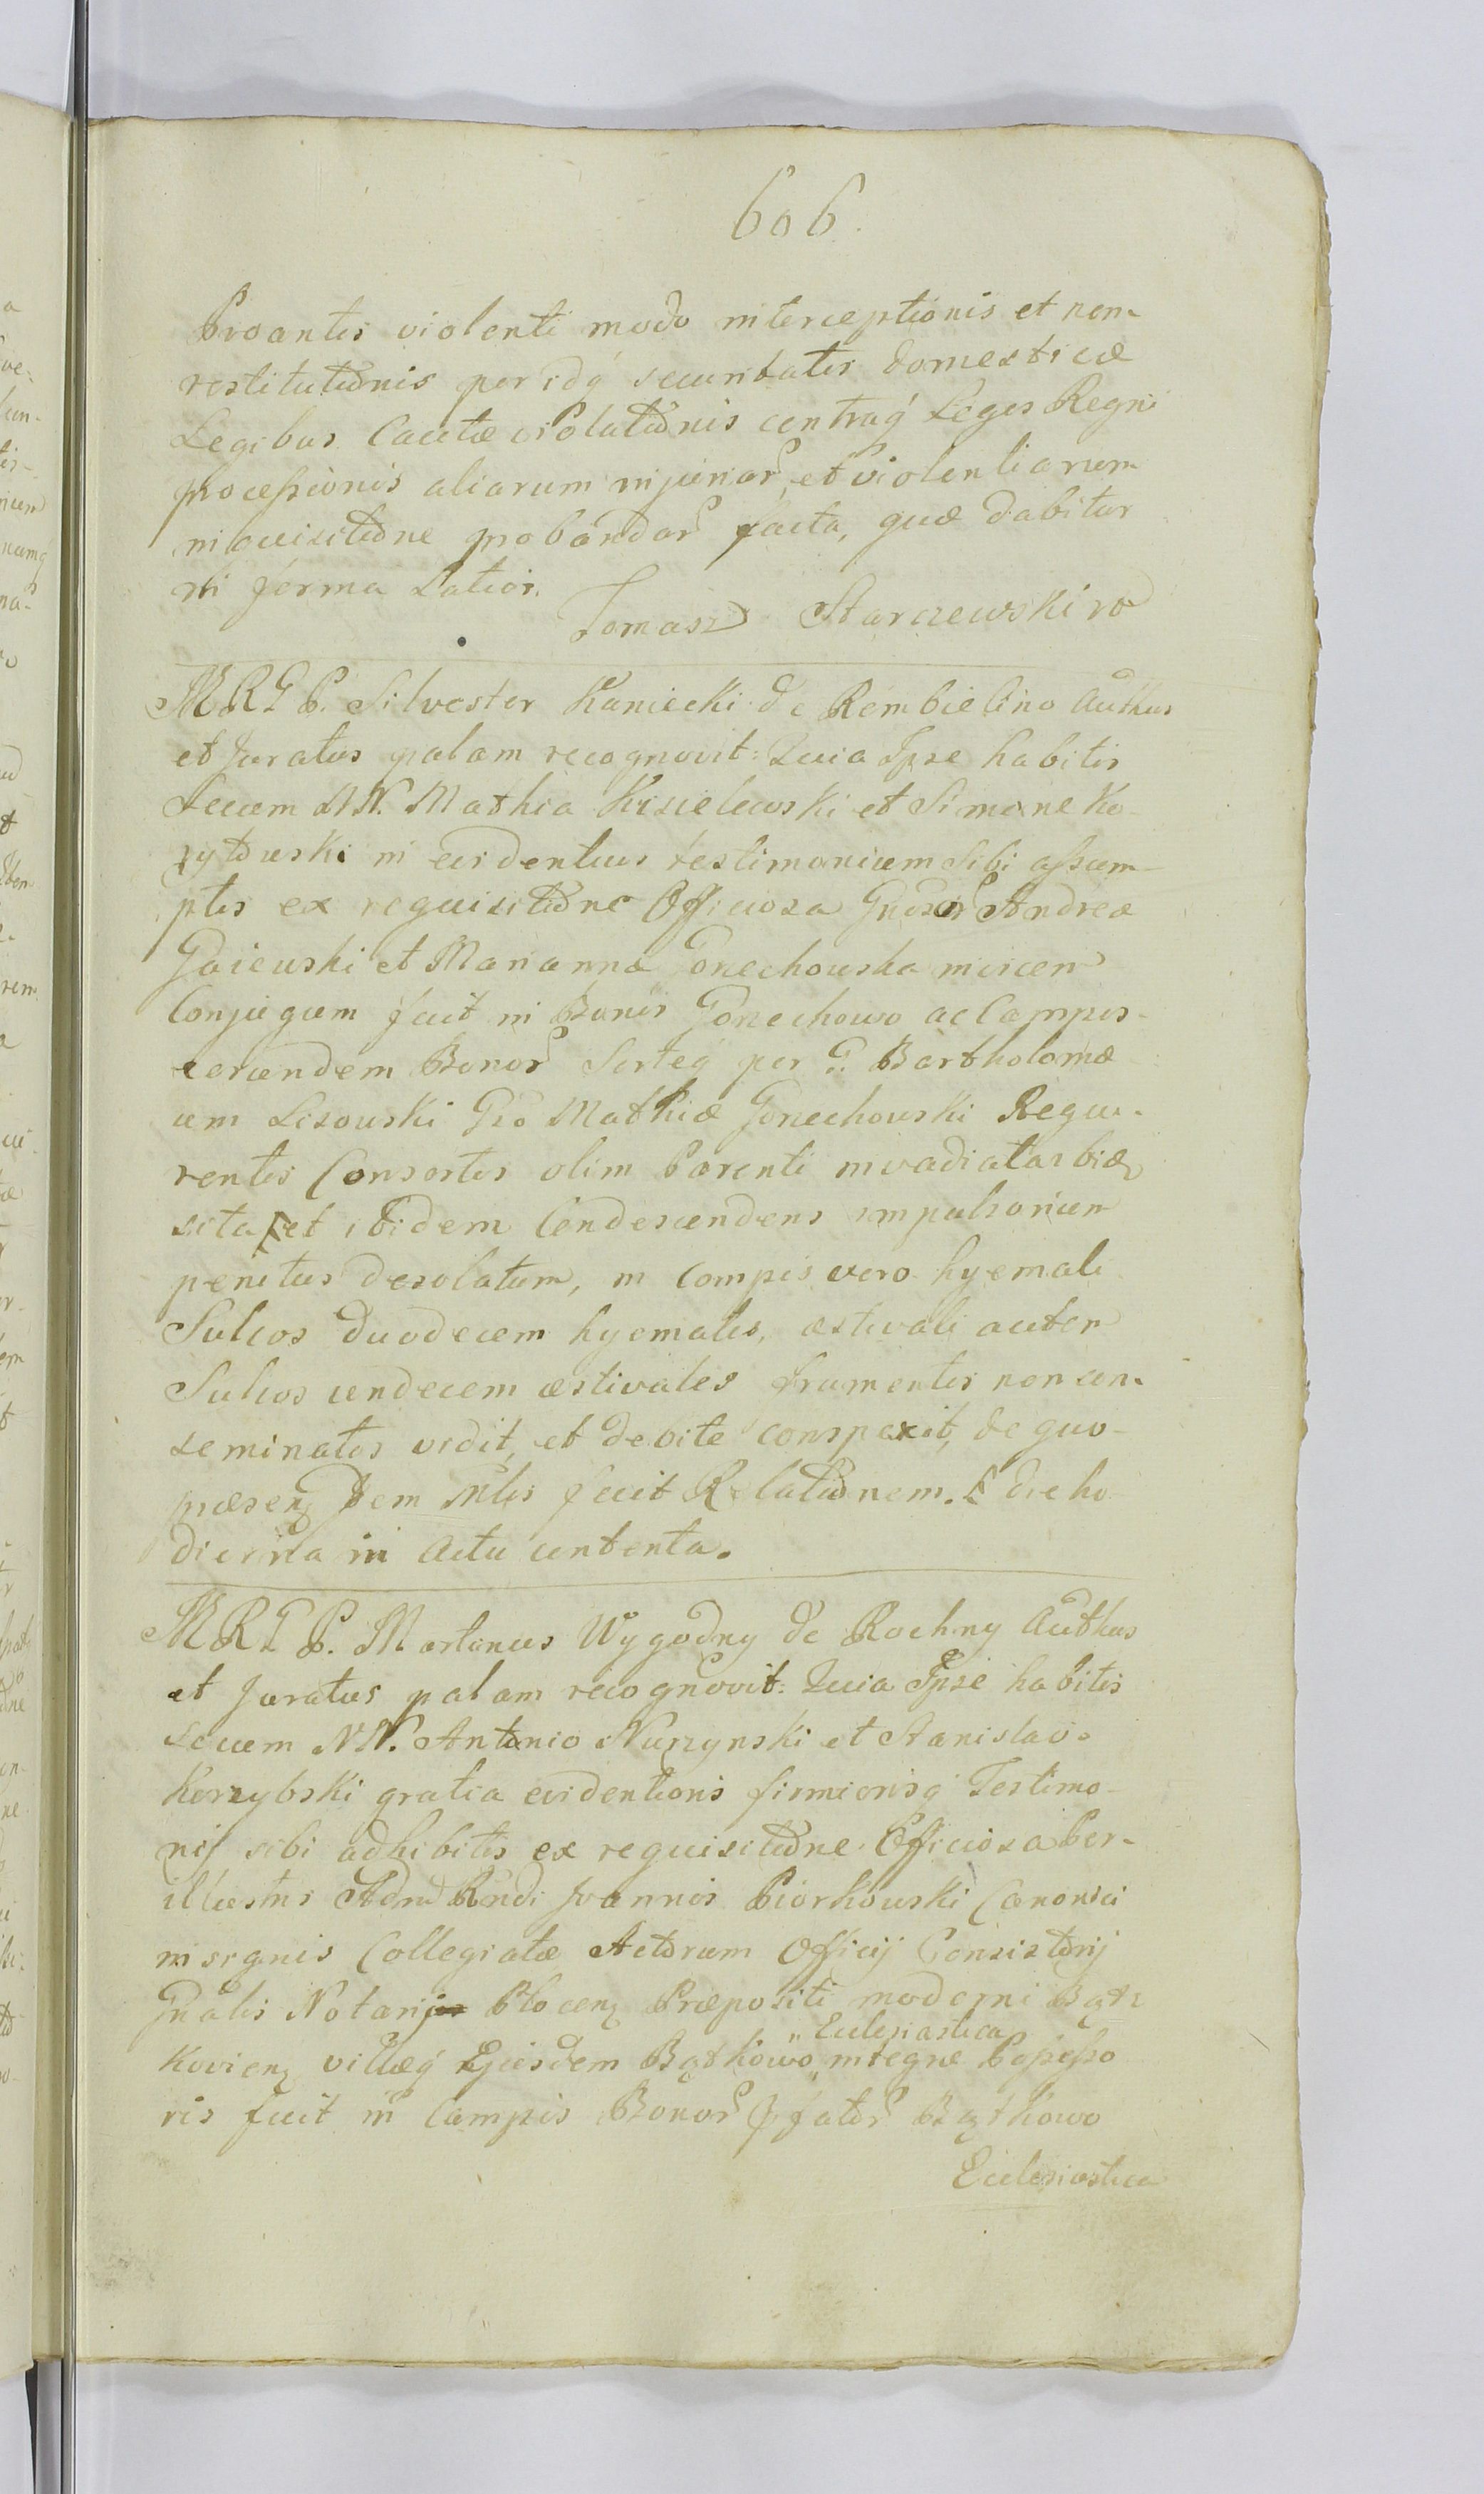 606.
Proantis violenti modo interceptionis et non-
restitutionis per idq́ securitatis domesticæ
Legibus Cautæ violationis contraq́ Leges Regni
processionis aliarum injuriar, et violentiarum
in quisitione probandar facta, quæ dabitur
in forma Latior.
Tomasz Starczewski
MRGP. Silvester Kaniecki de Rembielino Authus
et Juratus palam recognovit: Quia Ipse habitis
Secum NN. Mathia Kisielewski et Simone Ko-
rytowski in evidentius testimonium Sibi assum-
ptis ex requisitione Officiosa Gnosor Andreæ
Gaiewski et Mariannæ Gonechowska invicem
Conjugum fuit in Bonis Gonechowo ac Campis
eorundem Bonor Sorteq́ per G. Bartholomæ
um Lisowski Gso Mathiæ Gonechowski Requi-
rentis Consortis olim Parenti invadiatas biæ
sita et ibidem Condescendens impulsorium
penitus desolatum, in Campis vero hyemali
Sulcos duodecem hyemales, æstivali autem
Sulcos undecem æstivales frumentis non con-
seminatos vidit, et debite conspexit, de quo
præsen dem Mlis fecit Relationem. E die ho
dierna in Actu contenta.
MRGP. Martinus Wygodny de Rochny Authus
et Juratus palam recognovit: Quia Ipse habitis
Secum NN. Antonio Nurzynski et Stanislao
Korzybski gratia evidentioris firmiorisq́ Testimo-
nij sibi adhibitis ex requisitione Officiosa Per-
illustris Admd Rndi Joannis Piorkowski Canonici
insignis Collegiatæ Actorum Officij Consistorij
Gnalis Notarij Plocen Præpositi moderni Bąt-
kovien villæq́ Ejusdem Bątkowo Ecclesiastica integræ Possesso
ris fuit in Campis Bonor pfator Bątkowo
Ecclesiastica